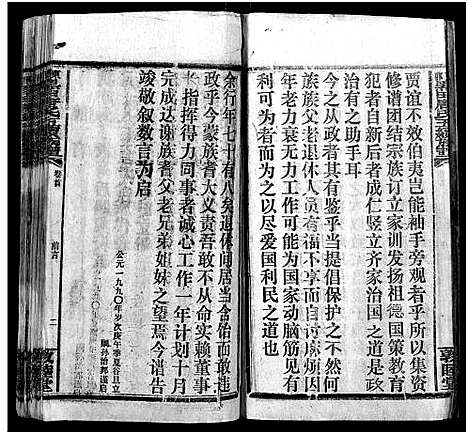 贾谊不效伯夷岂能袖手旁观者乎所以集资
修谱团结宗族订立家训发扬祖德国策教育
犯者自新后者成仁竖立齐家治国之道是政
府法治之助手耳
今上从政者其有鉴乎当提倡保护之不然何
族族父老退休人员有福不享而自讨麻烦因
年老力衰无力工作可能为国家动脑筋无以
利可为也可以尽爱国利民之道也
余行年七十有八矣退休闲居当含饴而敢违
政乎今蒙族耆大义责吾敢不从命实赖董事
长指挥得力同事者诚心工作一年计划十月
完成达谢族耆父老兄弟姐妹之望焉今谱告
竣敬叙数言为启
公元一九九〇年岁次庚午季夏谷旦立
嗣孙治邦谨启
卷首
前言
二
敦睦堂